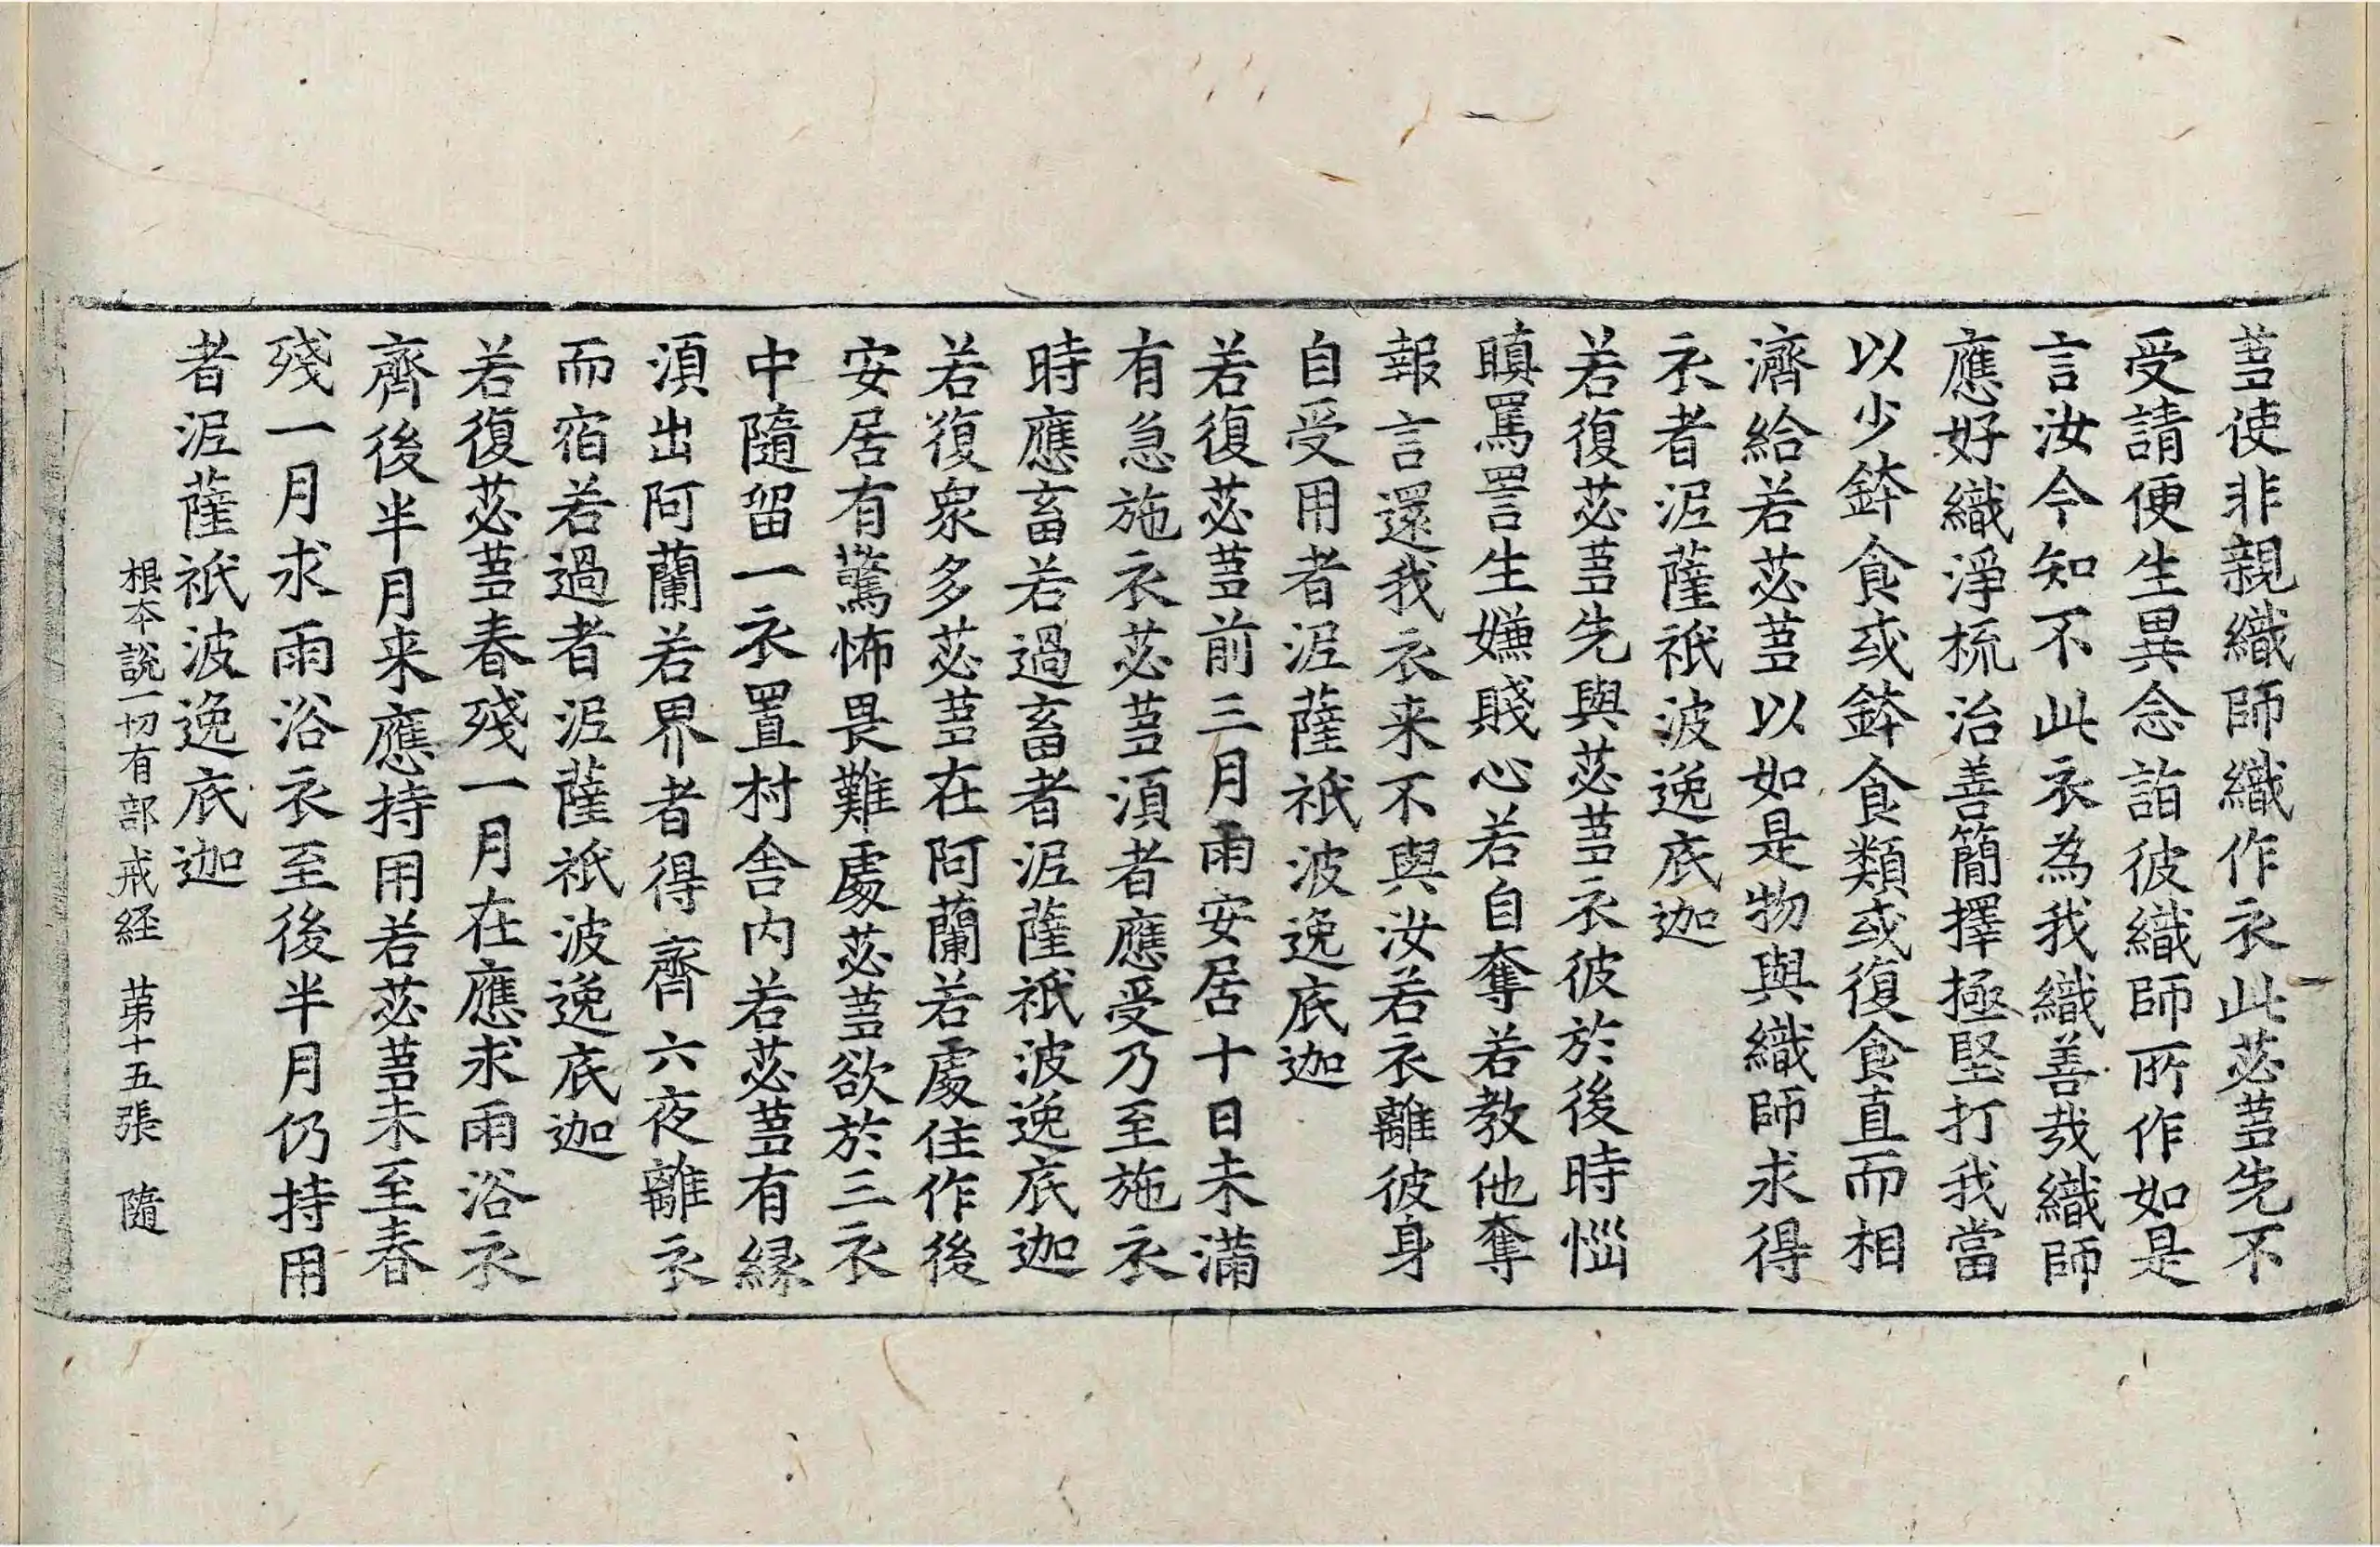 蒭使非親織師織作衣此苾蒭先不
受請便生異念詣彼織師所作如是
言汝今知不此衣為我織善哉織師
應好織淨梳治善簡擇極堅打我當
以少鉢食或鉢食類或復食直而相
濟給若苾蒭以如是物與織師求得
衣者泥薩祇波逸底迦
若復苾蒭先與苾蒭衣彼於後時惱
瞋罵詈生嫌賤心若自奪若教他奪
報言還我衣来不與汝若衣離彼身
自受用者泥薩祇波逸底迦
若復苾蒭前三月雨安居十日未滿
有急施衣苾蒭須者應受乃至施衣
時應畜若過畜者泥薩祇波逸底迦
若復衆多苾蒭在阿蘭若處住作後
安居有驚怖畏難處苾蒭欲於三衣
中隨留一衣置村舍內若苾蒭有縁
須出阿蘭若界者得齊六夜離衣
而宿若過者泥薩祇波逸底迦
若復苾蒭春殘一月在應求雨浴衣
齊後半月来應持用若苾蒭未至春
殘一月求雨浴衣至後半月仍持用
者泥薩祇波逸底迦
根本說一切有部戒経 第十五張 隨